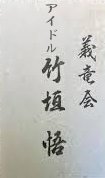 義竜会
アイドル 竹垣悟